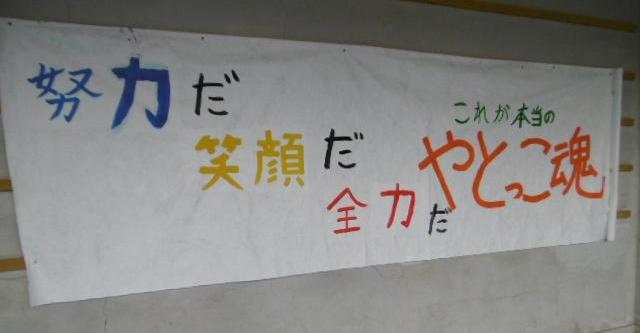 努力だ
笑顔だ
全力だ
これが本当の
やとっこ魂